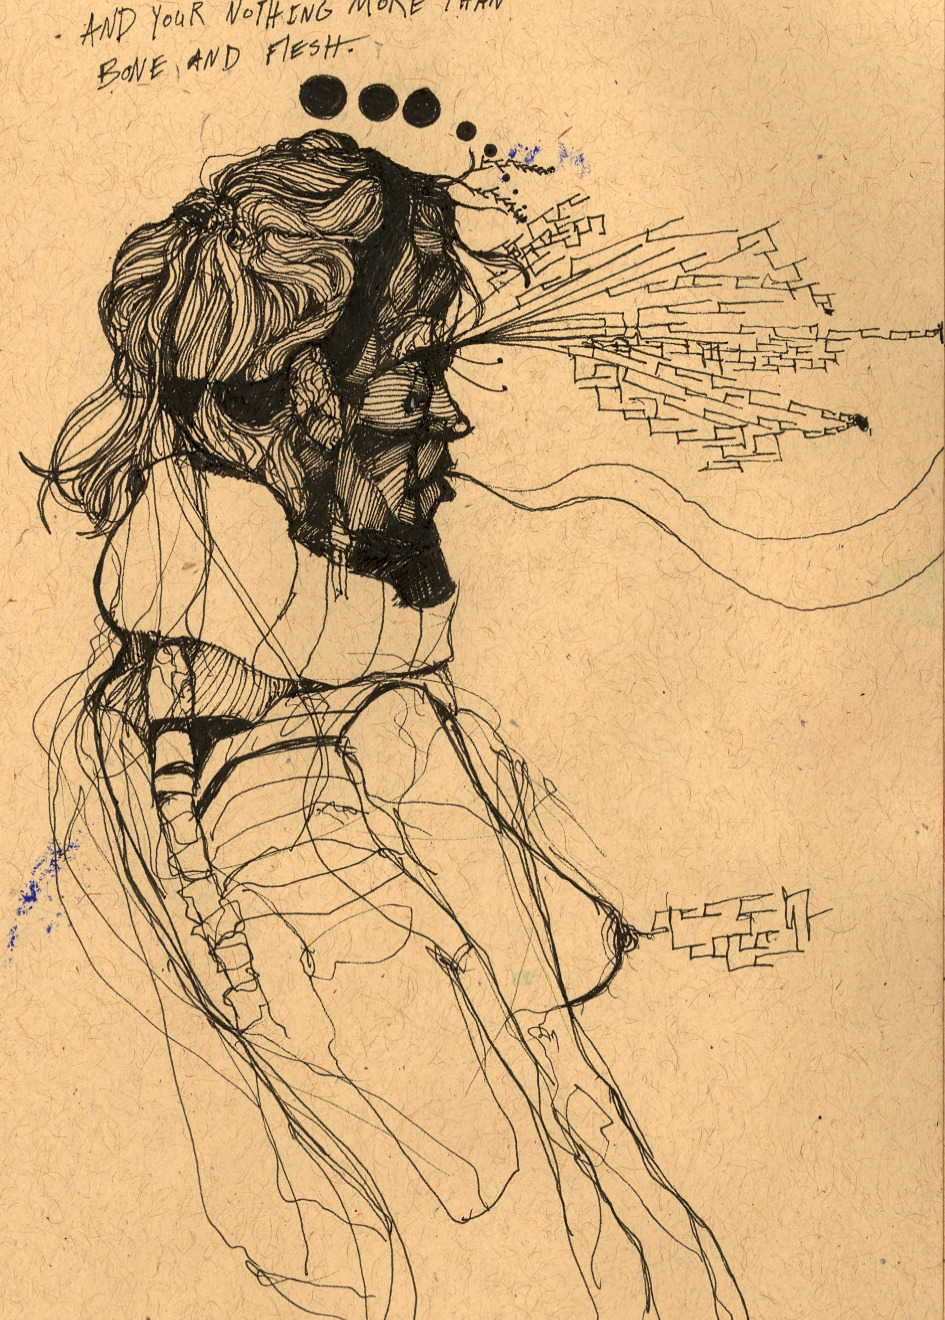 AND YOUR NOTHING MORE THAN
BONE AND FLESH.